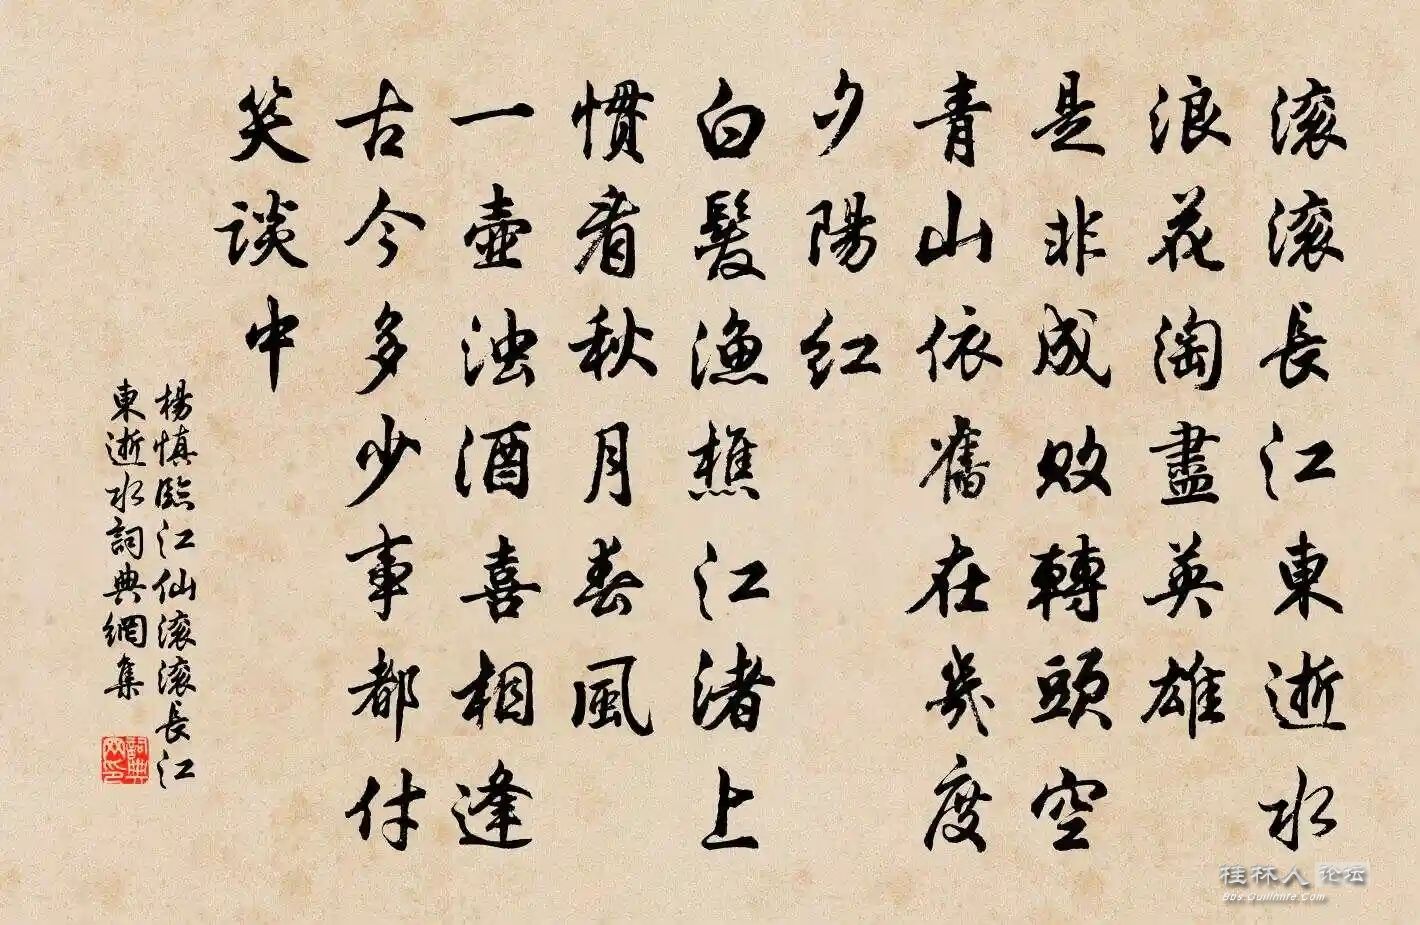 滚滚長江東逝水
浪花淘盡英雄
是非成敗轉頭空
青山依舊在幾度
夕陽紅
白髮漁樵江渚上
慣看秋月春風
一壺浊酒喜相逢
古今多少事都付
笑談中
楊慎臨江仙滚滚長江
東逝水詞典網集
詞典網印
桂林人论坛
Bbs.Guilinlife.Com